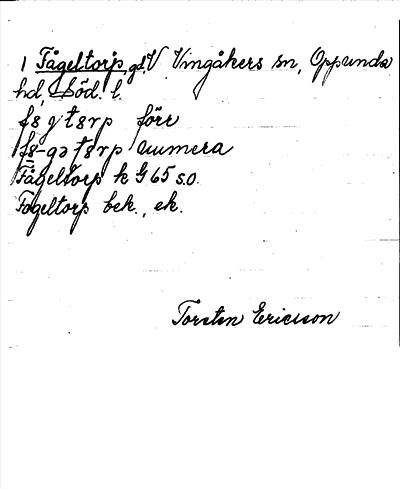 1 Fågeltorp gd, V Vingåkers sn, Oppunda
hd, Söd. l.
förr
numera
Fågeltorp k G 65 s.o.
Fogeltorp bek., ek.
Torsten Ericsson